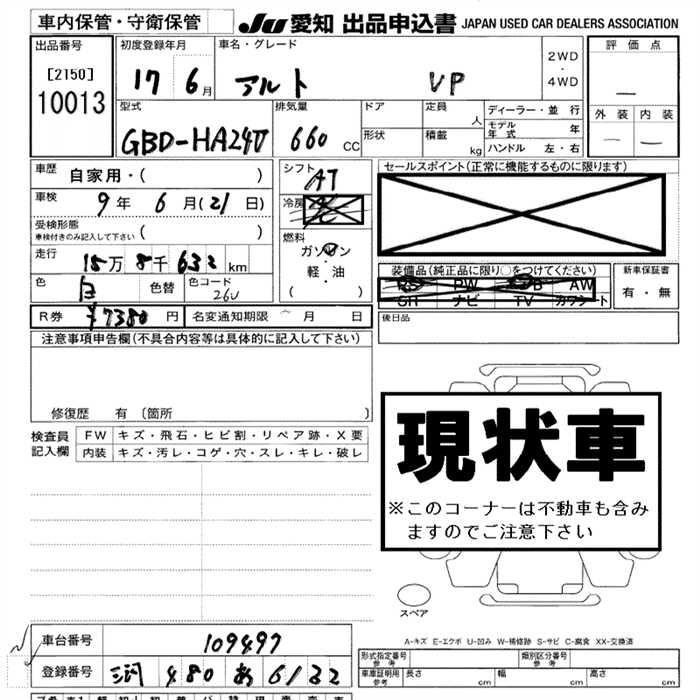 車内保管・守衛保管
JU 愛知 出品申込書 JAPAN USED CAR DEALERS ASSOCIATION
出品番号
[2150]
10013
初度登録年月
17 6月
車名・グレード
アルト VP
2WD
・
4WD
評価点
—
外装 内装
— —
型式
GBD-HA24V
排気量
660 CC
ドア
形状
定員 人
積載 kg
ディーラー・並行
モデル年式 年
ハンドル 左・右
車歴 自家用・( )
車検 9年 6月(21日)
受検形態
車検付きのみ記入して下さい ( )
走行 15万 8千 632 km
色 白 色替 色コード 26U
シフト AT
冷房
燃料
ガソリン
・
軽・油
( )
セールスポイント(正常に機能するものに限ります)
装備品(純正品に限り○をつけてください)
PS PW AW
SH ナビ TV カワシート
新車保証書
有・無
R券 ¥7380 円 名変通知期限 月 日
後日品
注意事項申告欄(不具合内容等は具体的に記入して下さい)
修復歴 有 〔箇所 〕
検査員記入欄
FW キズ・飛石・ヒビ割・リペア跡・X要
内装 キズ・汚レ・コゲ・穴・スレ・キレ・破レ
現状車
※このコーナーは不動車も含み
ますのでご注意下さい
スペア
A-キズ E-エクボ U-凹み W-補修跡 S-サビ C-腐食 XX-交換済
車台番号 109497
登録番号 三河 480 6122
形式指定番号
参考
類別区分番号
参考
車庫証明用
参考
長さ cm 幅 cm 高さ cm